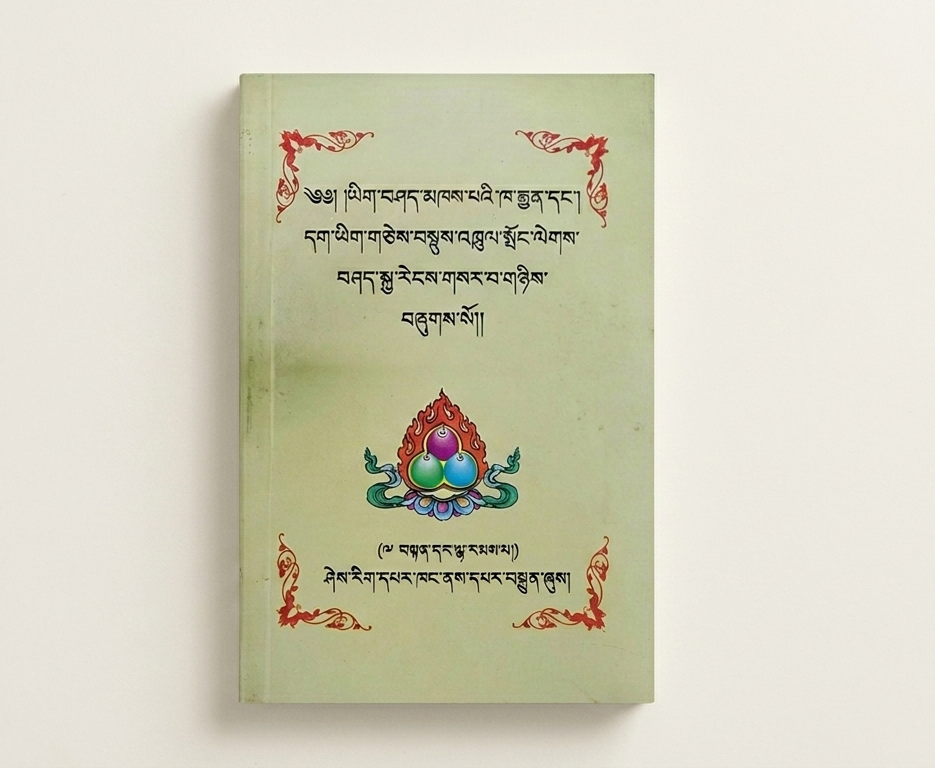 ༄༅། །ཡིག་བཤད་མཁས་པའི་ཁ་རྒྱན་དང་།
དག་ཡིག་གཅེས་བསྡུས་འཁྲུལ་སྤོང་ལེགས་
བཤད་སྐྱ་རེངས་གསར་བ་གཉིས་
བཞུགས་སོ།།
ཤེས་རིག་དཔར་ཁང་ནས་དཔར་བསྐྲུན་ཞུས།